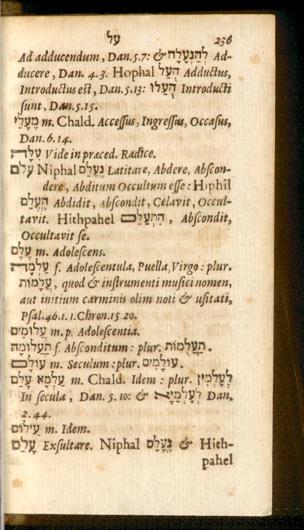 על 256
Ad adducendum, Dan. 5.7: & להנעלה Ad-
ducere, Dan. 4.3. Hophal העל Adductus,
Introductus est, Dan. 5.13: העלו Introducti
sunt, Dan. 5.15.
מעלי m. Chald. Accessus, Ingressus, Occasus,
Dan. 6.14.
עלה Vide in præced. Radice.
עלם Niphal נעלם Latitare, Abdere, Abscon-
dere, Abditum Occultum esse: Hiphil
העלם Abdidit, Abscondit, Celavit, Occul-
tavit. Hithpahel התעלם, Abscondit,
Occultavit se.
עלם m. Adolescens.
עלמה f. Adolescentula, Puella, Virgo: plur.
עלמות, quod & instrumenti musici nomen,
aut initium carminis olim noti & usitati,
Psal. 46.1. 1. Chron. 15.20.
עלומים m. p. Adolescentia.
תעלומה f. Absconditum: plur. תעלמות.
עולם m. Seculum: plur. עולמים.
עלם עלמא m. Chald. Idem: plur. לעלמין
In secula, Dan. 5.10: & לעלמיא Dan.
2.44.
עילום m. Idem.
עלם Exsultare. Niphal נעלם & Hith-
pahel